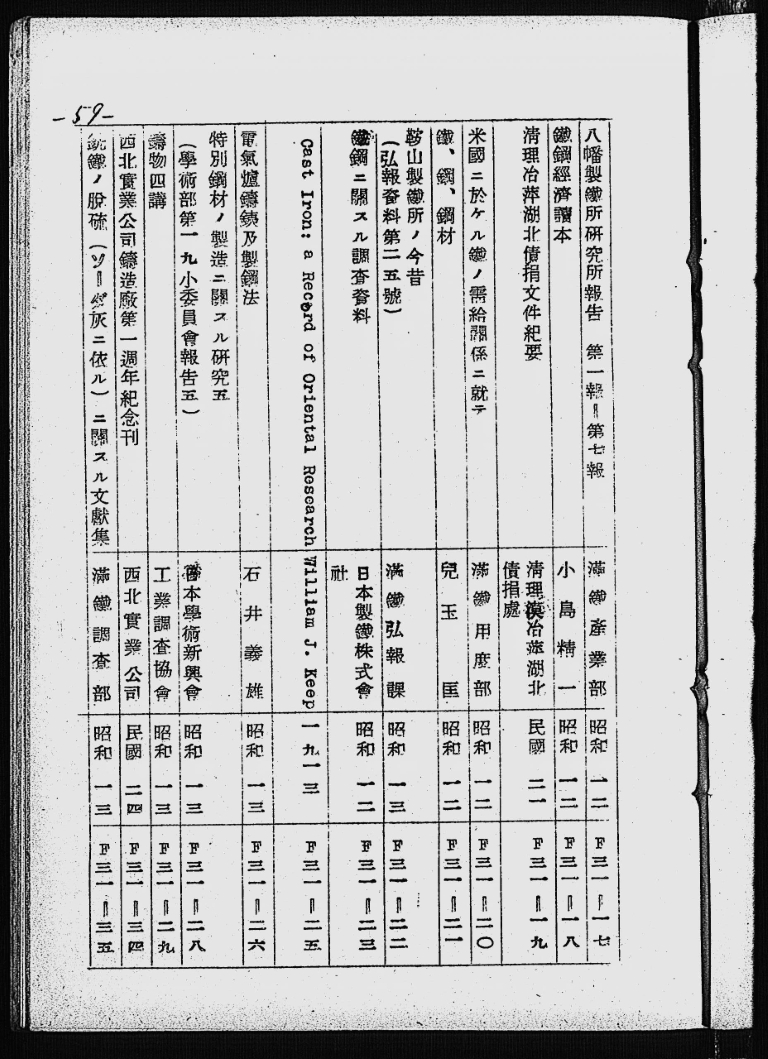 -59-
八幡製鐵所研究所報告　第一報ー第七報　滿鐵產業部　昭和一二　F三一ー一七
鐵鋼經濟讀本　小島精一　昭和一二　F三一ー一八
清理冶萍湖北債捐文件紀要　清理漢冶萍湖北債捐處　民國二一　F三一ー一九
米國ニ於ケル鐵ノ需給關係ニ就テ　滿鐵用度部　昭和一二　F三一ー二〇
鐵、鋼、鋼材　兒玉匡　昭和一二　F三一ー二一
鞍山製鐵所ノ今昔
(弘報資料第二五號)　滿鐵弘報課　昭和一三　F三一ー二二
鐵鋼ニ關スル調査資料　日本製鐵株式會社　昭和一二　F三一ー二三
Cast Iron: a Record of Oriental Research　William J. Keep　一九一三　F三一ー二五
電氣爐鑄銕及製鋼法　石井義雄　昭和一三　F三一ー二六
特別鋼材ノ製造ニ關スル硏究五
(學術部第一九小委員會報告五)　日本學術新興會　昭和一三　F三一ー二八
鑄物四講　工業調査協會　昭和一三　F三一ー二九
西北實業公司鑄造廠第一週年紀念刊　西北實業公司　民國二四　F三一ー三四
銑鐵ノ脫硫(ソーダ灰ニ依ル)ニ關スル文獻集　滿鐵調査部　昭和一三　F三一ー三五